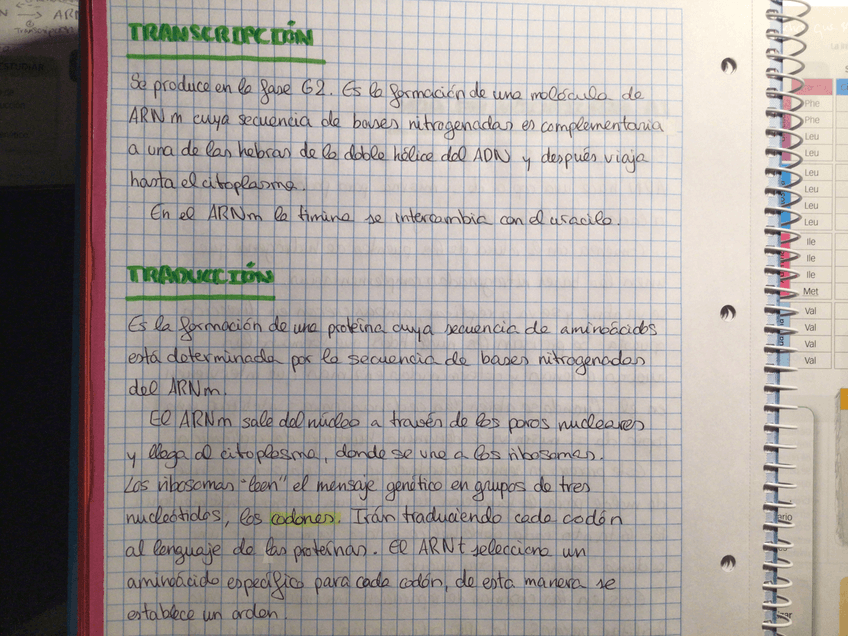 AR
TRANSCRIPCIÓN
Se produce en la fase G2. Es la formación de una molécula de
ARNm cuya secuencia de bases nitrogenadas es complementaria
a una de las hebras de la doble hélice del ADN y después viaja
hasta el citoplasma.
En el ARNm la timina se intercambia con el uracilo.
TRADUCCIÓN
Es la formación de una proteína cuya secuencia de aminoácidos
está determinada por la secuencia de bases nitrogenadas
del ARNm.
El ARNm sale del núcleo a través de los poros nucleares
y llega al citoplasma, donde se une a los ribosomas.
Los ribosomas "leen" el mensaje genético en grupos de tres
nucleótidos, los codones. Irán traduciendo cada codón
al lenguaje de las proteínas. El ARNt selecciona un
aminoácido específico para cada codón, de esta manera se
establece un orden.
ESTUDIAR
Phe
Phe
Leu
Leu
Leu
Leu
Leu
Leu
Ile
Ile
Ile
Met
Val
Val
Val
Val